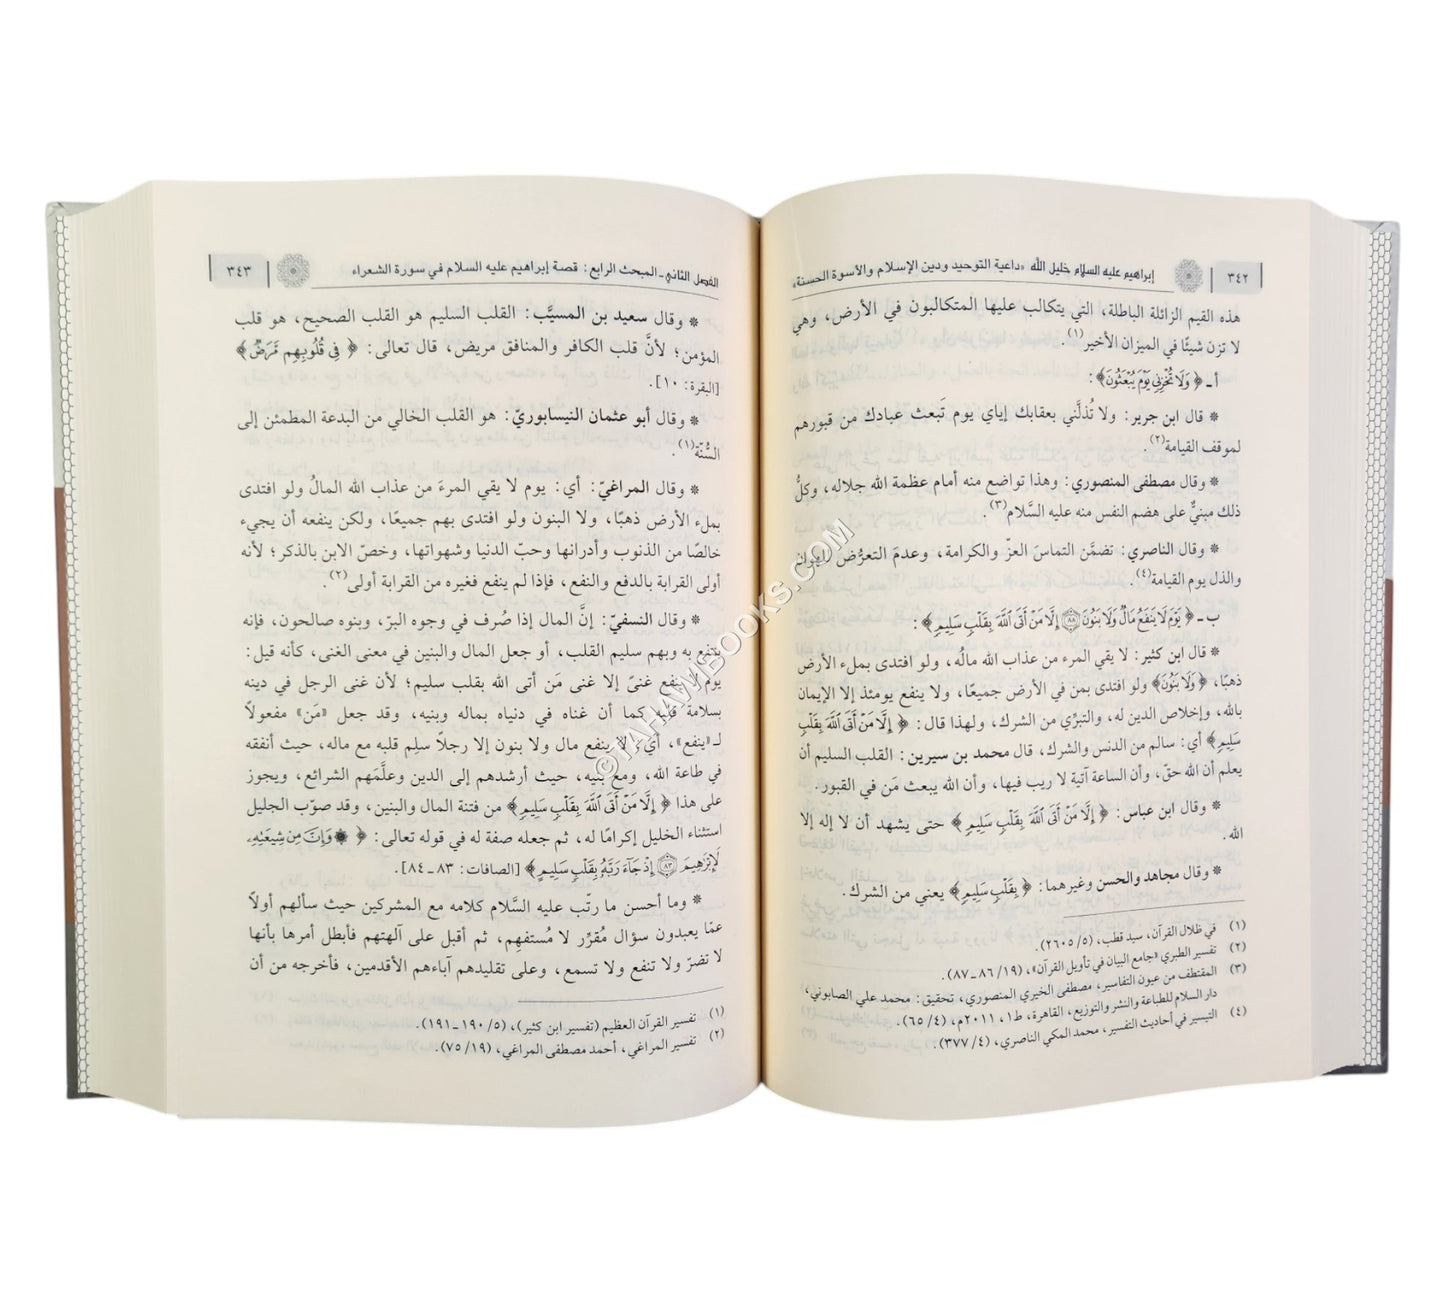 ٣٤٢
إبراهيم عليه السلام خليل الله «داعية التوحيد ودين الإسلام والأسوة الحسنة»
هذه القيم الزائلة الباطلة، التي يتكالب عليها المتكالبون في الأرض، وهي
لا تزن شيئًا في الميزان الأخير(١).
أ ـ ﴿ وَلَا تُخْزِنِي يَوْمَ يُبْعَثُونَ﴾:
* قال ابن جرير: ولا تُذلَّني بعقابك إياي يوم تَبعث عبادك من قبورهم
لموقف القيامة(٢).
* وقال مصطفى المنصوري: وهذا تواضع منه أمام عظمة الله جلاله، وكلُّ
ذلك مبنيٌّ على هضم النفس منه عليه السَّلام(٣).
* وقال الناصري: تضمَّن التماسَ العزّ والكرامة، وعدمَ التعرُّض للهوان
والذل يوم القيامة(٤).
ب ـ ﴿ يَوْمَ لَا يَنفَعُ مَالٌ وَلَا بَنُونَ ٨٨ إِلَّا مَنْ أَتَى ٱللَّهَ بِقَلْبٍ سَلِيمٍ ﴾:
* قال ابن كثير: لا يقي المرء من عذاب الله مالُه، ولو افتدى بملء الأرض
ذهبًا، ﴿وَلَا بَنُونَ﴾ ولو افتدى بمن في الأرض جميعًا، ولا ينفع يومئذ إلا الإيمان
بالله، وإخلاص الدين له، والتبرِّي من الشرك، ولهذا قال: ﴿ إِلَّا مَنْ أَتَى ٱللَّهَ بِقَلْبٍ
سَلِيمٍ﴾ أي: سالم من الدنس والشرك، قال محمد بن سيرين: القلب السليم أن
يعلم أن الله حقّ، وأن الساعة آتية لا ريب فيها، وأن الله يبعث مَن في القبور.
* وقال ابن عباس: ﴿ إِلَّا مَنْ أَتَى ٱللَّهَ بِقَلْبٍ سَلِيمٍ ﴾ حتى يشهد أن لا إله إلا
الله.
* وقال مجاهد والحسن وغيرهما: ﴿ بِقَلْبٍ سَلِيمٍ ﴾ يعني من الشرك.
(١) في ظلال القرآن، سيد قطب، (٥/ ٢٦٠٥).
(٢) تفسير الطبري «جامع البيان في تأويل القرآن»، (١٩/ ٨٦ ـ ٨٧).
(٣) المقتطف من عيون التفاسير، مصطفى الخيري المنصوري، تحقيق: محمد علي الصابوني،
دار السلام للطباعة والنشر والتوزيع، القاهرة، ط١، ٢٠١١م، (٤/ ٦٥).
(٤) التيسير في أحاديث التفسير، محمد المكي الناصري، (٤/ ٣٧٧).
الفصل الثاني ـ المبحث الرابع: قصة إبراهيم عليه السلام في سورة الشعراء
٣٤٣
* وقال سعيد بن المسيَّب: القلب السليم هو القلب الصحيح، هو قلب
المؤمن؛ لأنَّ قلب الكافر والمنافق مريض، قال تعالى: ﴿ فِي قُلُوبِهِم مَّرَضٌ ﴾
[البقرة: ١٠].
* وقال أبو عثمان النيسابوريّ: هو القلب الخالي من البدعة المطمئن إلى
السُّنّة(١).
* وقال المراغيّ: أي: يوم لا يقي المرءَ من عذاب الله المالُ ولو افتدى
بملء الأرض ذهبًا، ولا البنون ولو افتدى بهم جميعًا، ولكن ينفعه أن يجيء
خالصًا من الذنوب وأدرانها وحبّ الدنيا وشهواتها، وخصّ الابن بالذكر؛ لأنه
أولى القرابة بالدفع والنفع، فإذا لم ينفع فغيره من القرابة أولى(٢).
* وقال النسفيّ: إنَّ المال إذا صُرف في وجوه البرّ، وبنوه صالحون، فإنه
ينتفع به وبهم سليم القلب، أو جعل المال والبنين في معنى الغنى، كأنه قيل:
يوم لا ينفع غنىً إلا غنى مَن أتى الله بقلب سليم؛ لأن غنى الرجل في دينه
بسلامة قلبه كما أن غناه في دنياه بماله وبنيه، وقد جعل «مَن» مفعولاً
لـ«ينفع»، أي: لا ينفع مال ولا بنون إلا رجلًا سلِم قلبه مع ماله، حيث أنفقه
في طاعة الله، ومع بنيه، حيث أرشدهم إلى الدين وعلَّمَهم الشرائع، ويجوز
على هذا ﴿ إِلَّا مَنْ أَتَى ٱللَّهَ بِقَلْبٍ سَلِيمٍ﴾ من فتنة المال والبنين، وقد صوّب الجليل
استثناء الخليل إكرامًا له، ثم جعله صفة له في قوله تعالى: ﴿ ۞ وَإِنَّ مِن شِيعَتِهِۦ
لَإِبْرَٰهِيمَ ٨٣ إِذْ جَآءَ رَبَّهُۥ بِقَلْبٍ سَلِيمٍ﴾ [الصافات: ٨٣ ـ ٨٤].
* وما أحسن ما رتّب عليه السَّلام كلامه مع المشركين حيث سألهم أولاً
عمّا يعبدون سؤال مُقرِّر لا مُستفهِم، ثم أقبل على آلهتهم فأبطل أمرها بأنها
لا تضرّ ولا تنفع ولا تسمع، وعلى تقليدهم آباءهم الأقدمين، فأخرجه من أن
(١) تفسير القرآن العظيم (تفسير ابن كثير)، (٥/ ١٩٠ ـ ١٩١).
(٢) تفسير المراغي، أحمد مصطفى المراغي، (١٩/ ٧٥).
©TAHAWIBOOKS.COM